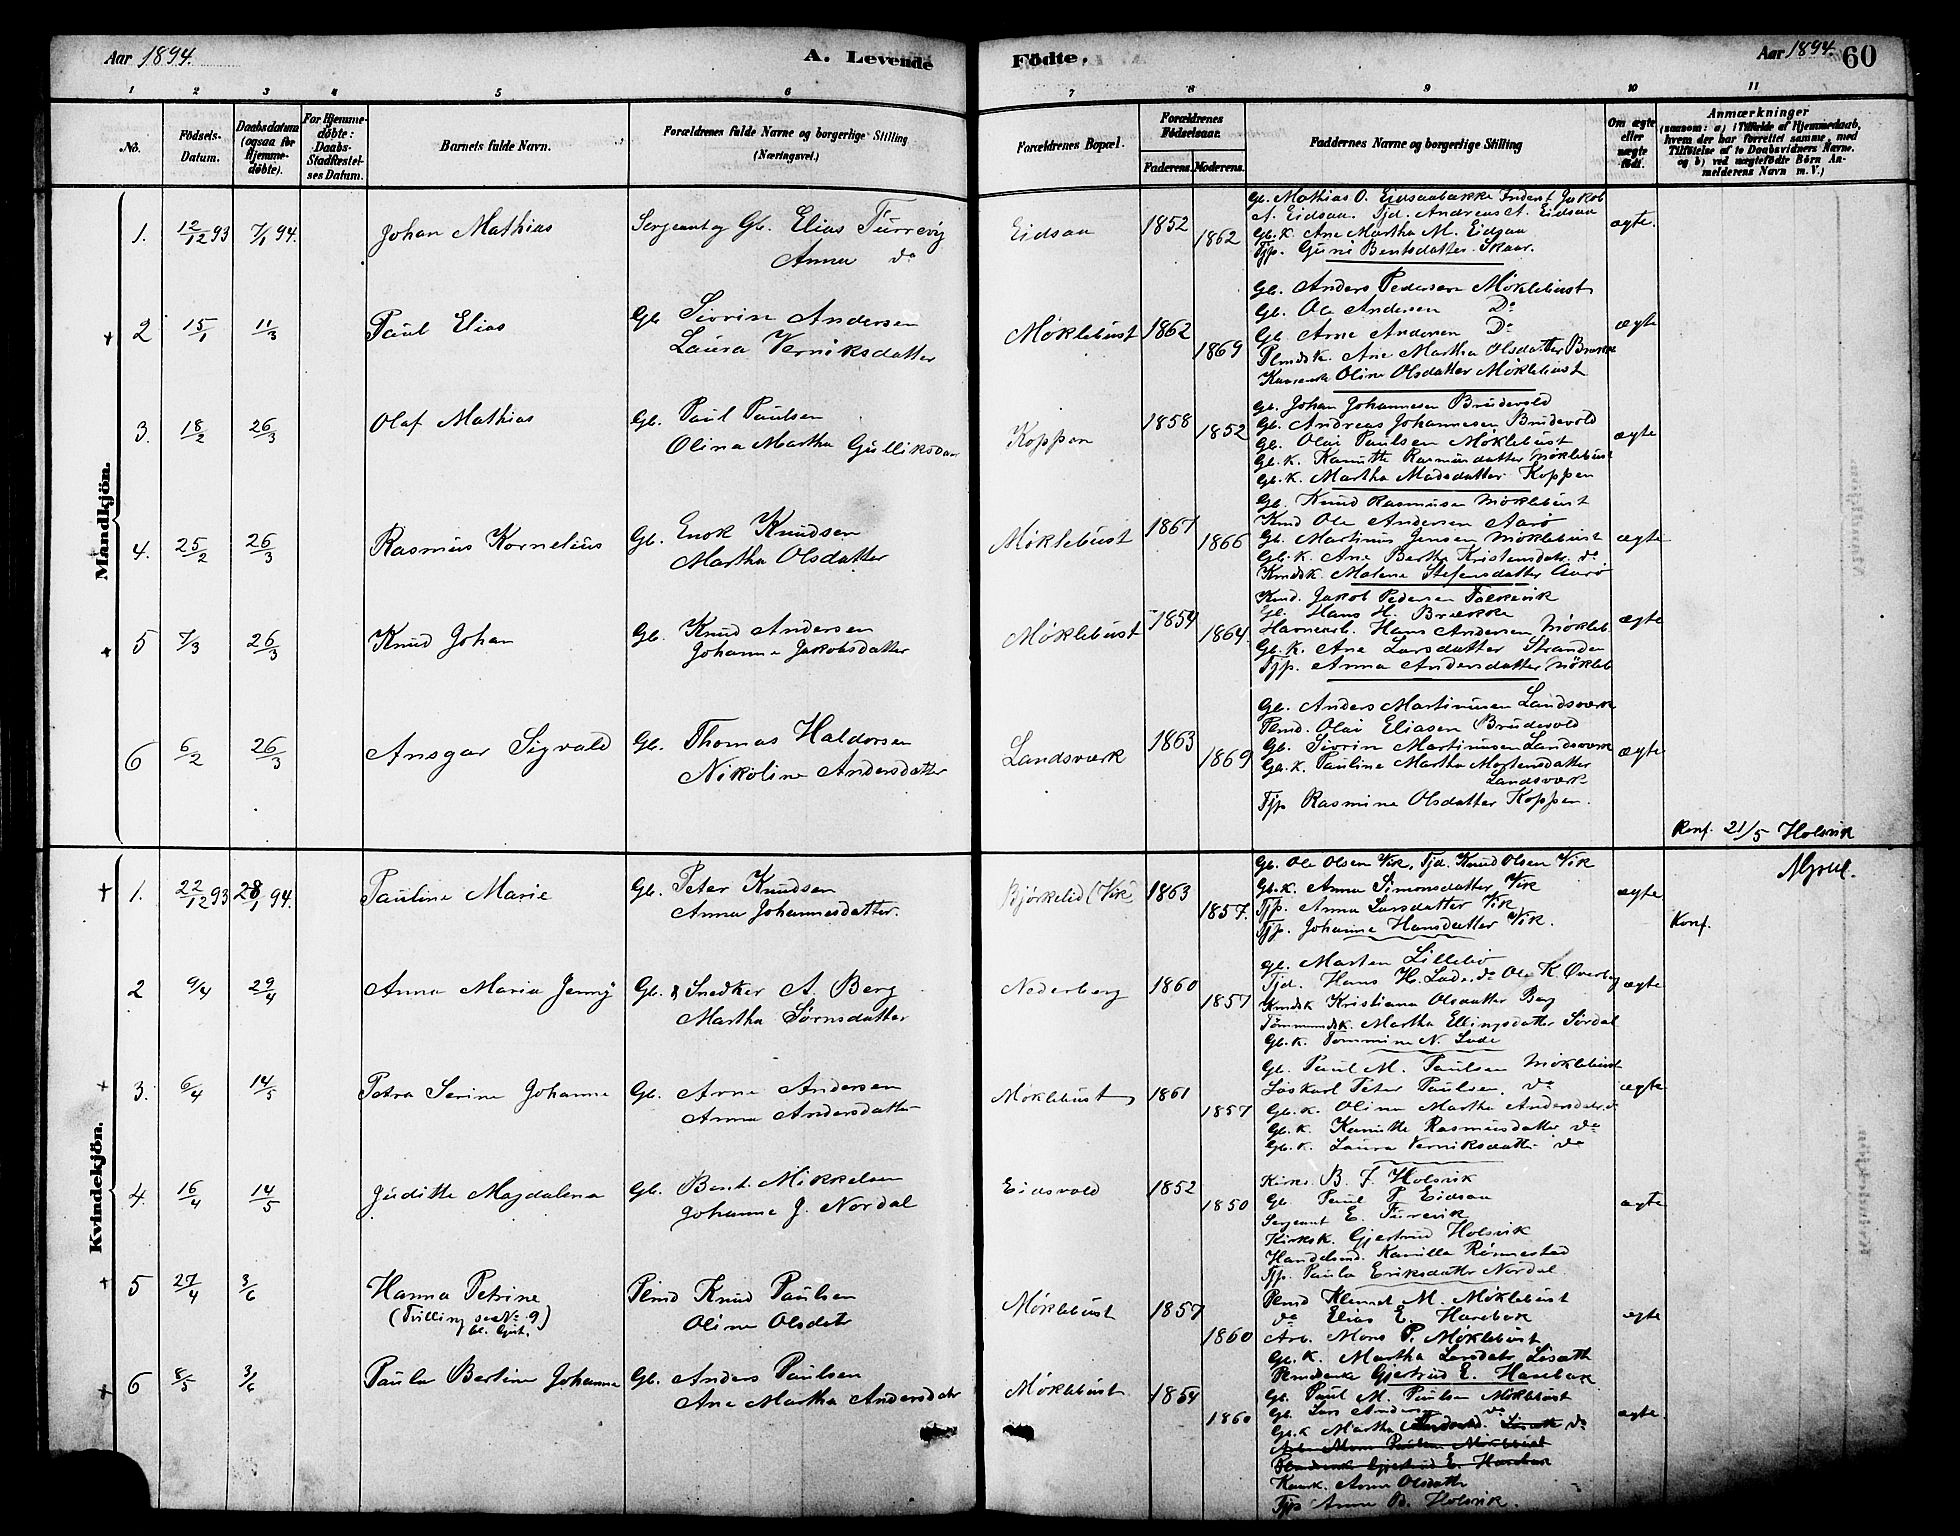 Aar 1894. A. Levende Fødte. Aar 1894. 60
1 2 3 4 5 6 7 8 9 10 11
No. Fødsels-Datum. Daabsdatum (ogsaa for Hjemmedøbte). For Hjemmedøbte: Daabs-Stadfæstelses Datum. Barnets fulde Navn. Forældrenes fulde Navne og borgerlige Stilling (Næringsvei.) Forældrenes Bopæl. Forældrenes Fødselsaar. Faderens. Moderens. Faddernes Navne og borgerlige Stilling Om ægte eller uægte født. Anmærkninger
(saasom: a) i Tilfælde af Hjemmedaab, hvem der har forrettet samme, med Tilføielse af to Daabsvidners Navne, og b) ved uægtefødte Börn Anmelderens Navn m. V.)
Mandkjön.
1. 12/12 93 7/1 94. Johan Mathias
Sergeant og Gb. Elias Furrevig
Anna do
Eidsaa 1852 1862
Gb. Mathias O. Eidsaabakke Inderst Jakob
A. Eidsaa. Tjd. Andreas A. Eidsaa
Gb.k. Ane Martha M. Eidsaa
Tjp. Guni Bentsdatter Skaar.
ægte.
2 15/1 11/3 Paul Elias
Gb Sivrin Andersen
Laura Verniksdatter
Møklebust 1862 1869
Gb. Anders Pedersen Møklebust
Gb. Ole Andersen Do
Gb. Arne Andersen Do
Plmdsk. Ane Martha Olsdatter Brække
Oline Olsdatter Møklebust
ægte
3. 18/2 26/3 Olaf Mathias
Gb. Paul Paulsen
Olina Martha Gulliksdatr
Koppen 1858 1852
Gb. Johan Johannesen Brudevold
Gb. Andreas Johannesen Brudevold
Gb. Olai Paulsen Møklebust
Gb.k. Kanutte Rasmusdatter Møklebust
Gb.k. Martha Madsdatter Koppen
ægte
4. 25/2 26/3 Rasmus Kornelius
Gb. Enok Knudsen
Martha Olsdatter
Møklebust 1867 1866
Gb. Knud Rasmusen Møklebust
Kmd Ole Andersen Aarø
Gb. Martinus Jensen Møklebust
Gb.k. Ane Berthe Kristensdatr. do
Kmdsk. Malene Stefensdatter Aarø
ægte
5 7/3 26/3 Knud Johan
Gb. Knud Andersen
Johanne Jakobsdatter
Møklebust 1854 1864.
Kmd. Jakob Pedersen Falkevik
Gb. Hans H. Brække
Havnearb. Hans Andersen Møkleb
Gb.k. Ane Larsdatter Stranden
Tjp. Anna Andersdatter Mökleb
ægte
6 6/2 26/3 Ansgar Sigvald
Gb. Thomas Haldorsen
Nikoline Andersdatter
Landsværk 1863 1869
Gb. Anders Martinusen Landsværk
Plmd. Olai Eliasen Brudevold
Gb. Sivrin Martinusen Landsværk
Gb.k. Pauline Martha Mortensdatter
Landsværk
Tjp Rasmine Olsdatter Koppen.
ægte
Konf. 21/5 Holsvik
Kvindekjön.
1. 22/12 93 28/1 94. Pauline Marie
Gb. Peter Knudsen
Anna Johannesdatter.
Bjørkelid (Vik) 1863 1857.
Gb. Ole Olsen Vik, Tjd. Knud Olsen Vik
Gb.k. Anna Simonsdatter Vik
Tjp. Anna Larsdatter Vik
Tjp. Johanne Hansdatter Vik.
ægte
Konf.
2 9/4 29/4 Anna Maria Jenny
Gb. & Snedker A. Berg
Martha Sørnsdatter
Nederberg 1860 1857
Gb. Morten Lillebø
Tjd. Hans H. Lade, do Ole K. Øverberg
Kmdsk Kristiana Olsdatter Berg
Tømmermdsk. Martha Ellingsdatter Sørdal
Gb.k. Tommine N. Lade
ægte
3. 6/4 14/5 Petra Serine Johanne
Gb. Arne Andersen
Anna Andersdatter
Møklebust 1861 1857
Gb. Paul M. Paulsen Møklebust
Løskarl Peter Paulsen, do
Gb.k. Olina Martha Andersdatr. do
Gb.k. Kanutte Rasmusdatter do
Gb.k. Laura Verniksdatter do
ægte
4 16/4 14/5 Juditte Magdalena
Gb. Bent Mikkelsen
Johanne J. Nordal
Eidsvold 1852 1850
Kirks. B. J. Holsvik
Gb. Paul P. Eidsaa
Sergeant E. Furrevik
Kirksk. Gjertrud Holsvik
Handelsmd. Kamilla Rønnestad
Tjp. Paula Eriksdatter Nordal.
ægte
5 27/4 3/6 Hanna Petrine
(Tvilling se No 9)
bl. Gut.
Plmd Knud Paulsen
Oline Olsdatr
Møklebust 1857 1860
Plmd Klemet M. Møklebust
do Elias E. Harebak
Arb. Mons P. Møklebust
Gb.k. Martha Larsdatr Lisætth
Plmdsenk Gjertrud E. Harebak
ægte
6 8/5 3/6 Paula Bertine Johanna
Gb. Anders Paulsen
Ane Martha Andersdatr
Møklebust 1854 1860
Gb. Paul M. Paulsen Møklebust
Gb. Lars Andersen do
Gb.k Martha do
Arb. Mons Paulsen Møklebust
Plmdsenk Gjertrud E. Harebak
Anna Olsdatter
Tjp Anna B. Holsvik.
ægte.